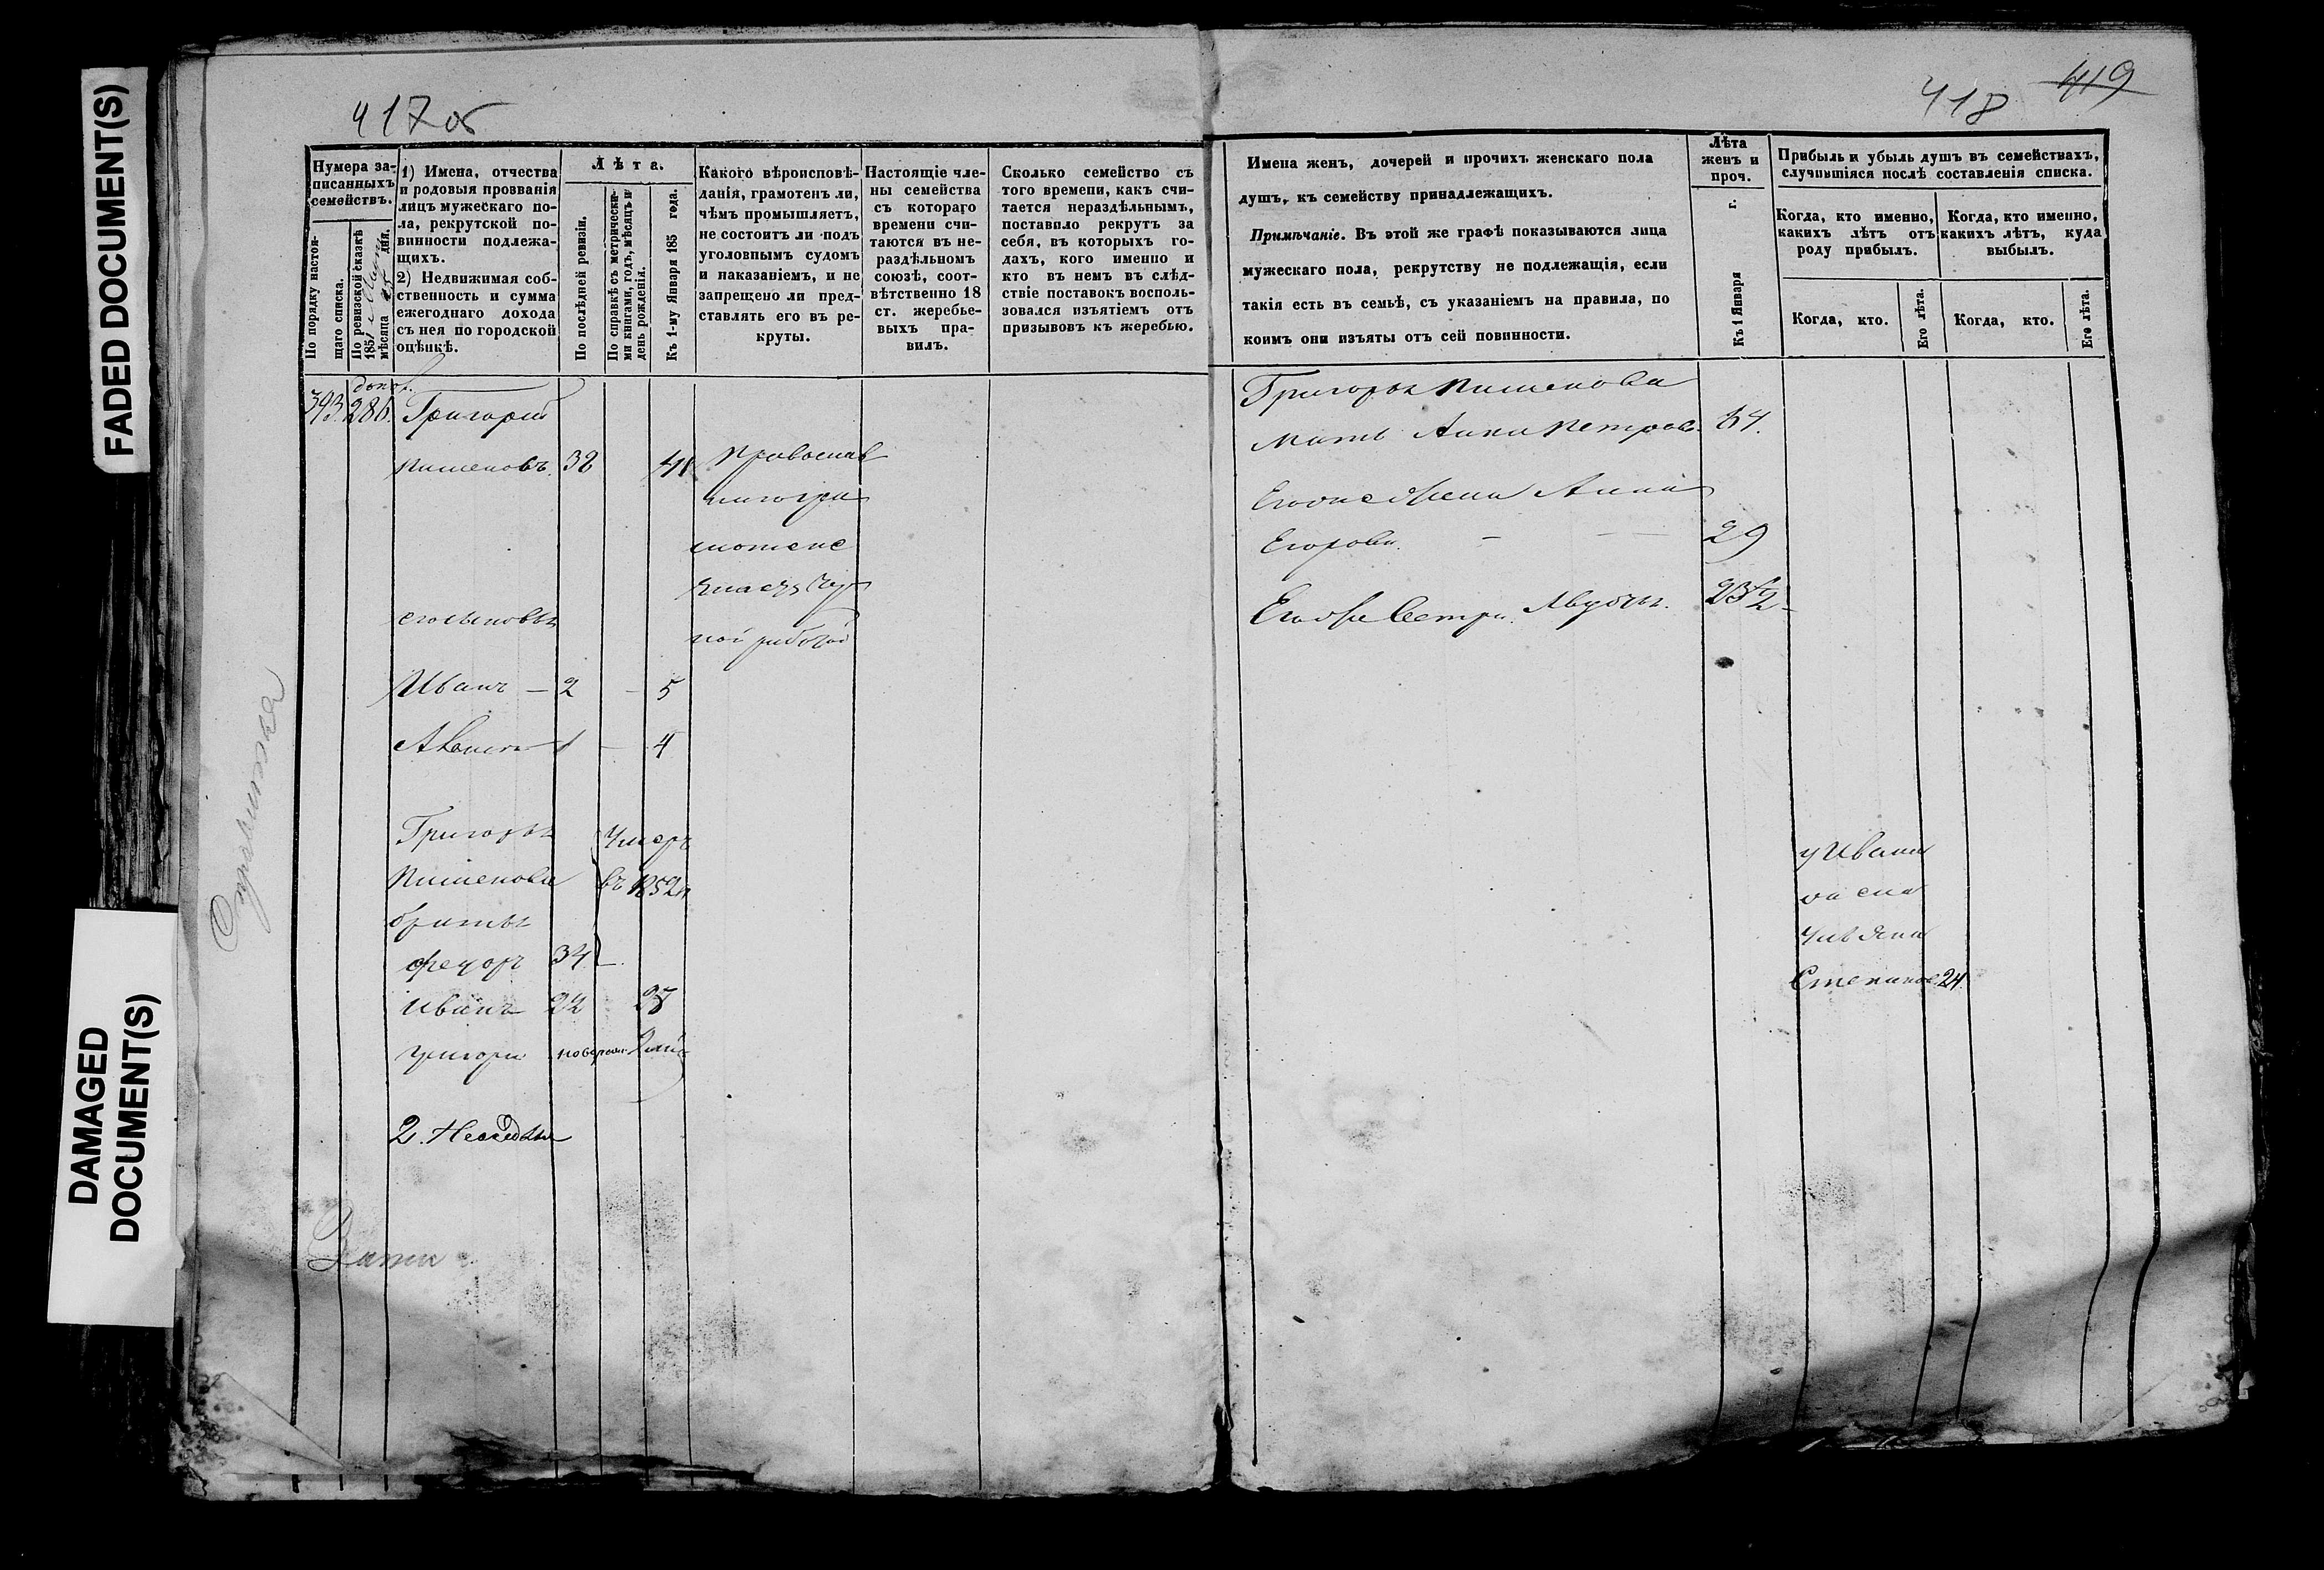 FADED DOCUMENT(S)
DAMAGED
DOCUMENT(S)
417об
418 419
Нумера за-
писанныхъ
семействъ.
По порядку настоя-
щаго списка.
По ревизской сказкѣ
185 г.
мѣсяца дня.
1) Имена, отчества
и родовыя прозванія
лицъ мужескаго по-
ла, рекрутской по-
винности подлежа-
щихъ.
2) Недвижимая соб-
ственность и сумма
ежегоднаго дохода
съ нея по городской
оцѣнкѣ.
Лѣта.
По послѣдней ревизіи.
По справкѣ съ метрически-
ми книгами, годъ, мѣсяцъ и
день рожденія.
Къ 1-му Января 185 года.
Какого вѣроисповѣ-
данія, грамотенъ ли,
чѣмъ промышляетъ,
не состоитъ ли подъ
уголовнымъ судомъ
и наказаніемъ, и не
запрещено ли пред-
ставлять его въ ре-
круты.
Настоящіе чле-
ны семейства
съ котораго
времени счи-
таются въ не-
раздѣльномъ
союзѣ, соот-
вѣтственно 18
ст. жеребье-
выхъ пра-
вилъ.
Сколько семейство съ
того времени, какъ счи-
тается нераздѣльнымъ,
поставило рекрутъ за
себя, въ которыхъ го-
дахъ, кого именно и
кто въ немъ въ слѣд-
ствіе поставокъ восполь-
зовался изъятіемъ отъ
призывовъ къ жеребью.
Имена женъ, дочерей и прочихъ женскаго пола
душъ, къ семейству принадлежащихъ.
Примѣчаніе. Въ этой же графѣ показываются лица
мужескаго пола, рекрутству не подлежащія, если
такія есть въ семьѣ, съ указаніемъ на правила, по
коимъ они изъяты отъ сей повинности.
Лѣта
женъ и
проч.
Къ 1 Января г.
Прибыль и убыль душъ въ семействахъ,
случившіяся послѣ составленія списка.
Когда, кто именно,
какихъ лѣтъ отъ
роду прибылъ.
Когда, кто именно,
какихъ лѣтъ, куда
выбылъ.
Когда, кто.
Его лѣта.
Когда, кто.
Его лѣта.
393 286. Григорій
Пименовъ 38 41
Православ
мотенъ
ной работой
его сыновья
Иванъ — 2 — 5
1 — 4
Григорья
Пименова
братья
Умеръ
въ 1852 г
Федоръ 34
Иванъ 22 25
Григорій
2. Не
Григорья Пименова
Мать Анна Петрова. 64.
Его жена Анна
Егорова. — — 29
Его сестра 23½
у Ивана
Степанов. 24.